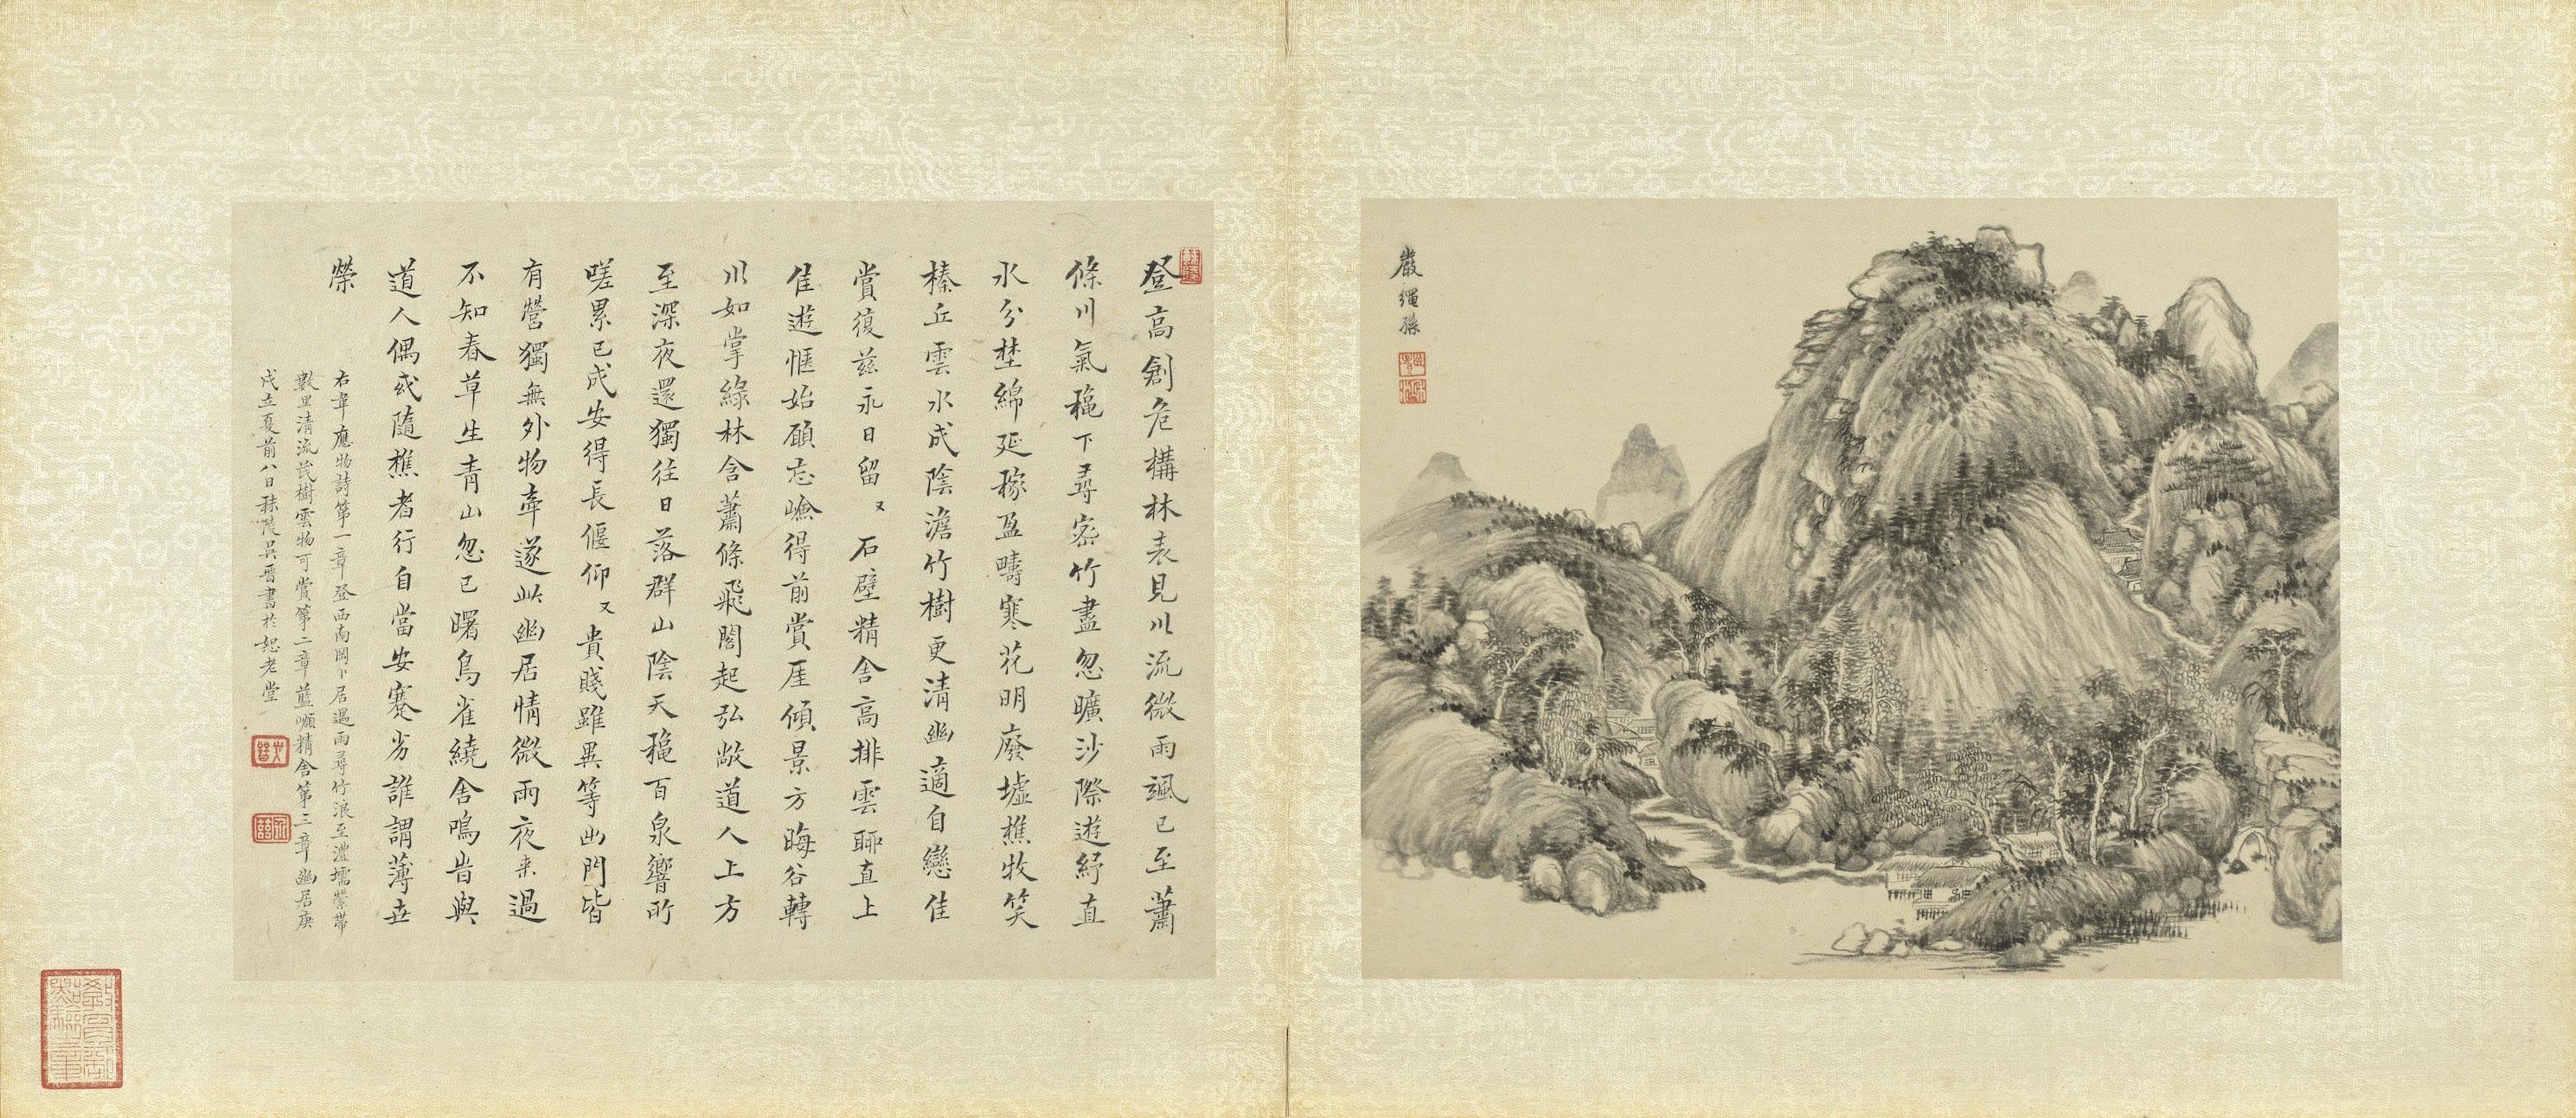 嚴繩孫
登高創危構林表見川流微雨颯已至蕭
條川氣穐下尋密竹盡忽曠沙際遊紆直
水分埜綿延稼盈疇寒花明廢墟樵牧笑
榛丘雲水成陰澹竹樹更清幽適自戀佳
賞復茲永日留 又 石壁精舍高排雲聊直上
佳遊愜始願忘嶮得前賞厓傾景方晦谷轉
川如掌綠林含蕭條飛閣起弘敞道人上方
至深夜還獨往日落群山陰天穐百泉響所
嗟累已成安得長偃仰 又 貴賤雖異等出門皆
有營獨無外物牽遂此幽居情微雨夜來過
不知春草生青山忽已曙鳥雀繞舍鳴旹與
道人偶或隨樵者行自當安蹇劣誰謂薄世
榮
右韋應物詩第一章登西南岡卜居遇雨尋竹浪至澧壖縈帶
數里清流茂樹雲物可賞第二章藍嶺精舍第三章幽居庚
戌立夏前八日秣陵吳晉書於恕老堂